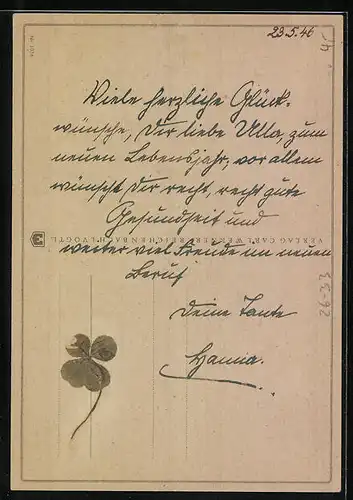 23.5.46
Viele herzliche Glück-
wünsche, Dir liebe Ulla, zum
neuen Lebensjahr, vor allem
wünscht Dir recht, recht gute
Gesundheit und
weiter viel Freude im neuen
Beruf
Deine Tante
Hanna.
VERLAG CARL WERNER, REICHENBACH I. VOGTL.
26-33
4,-